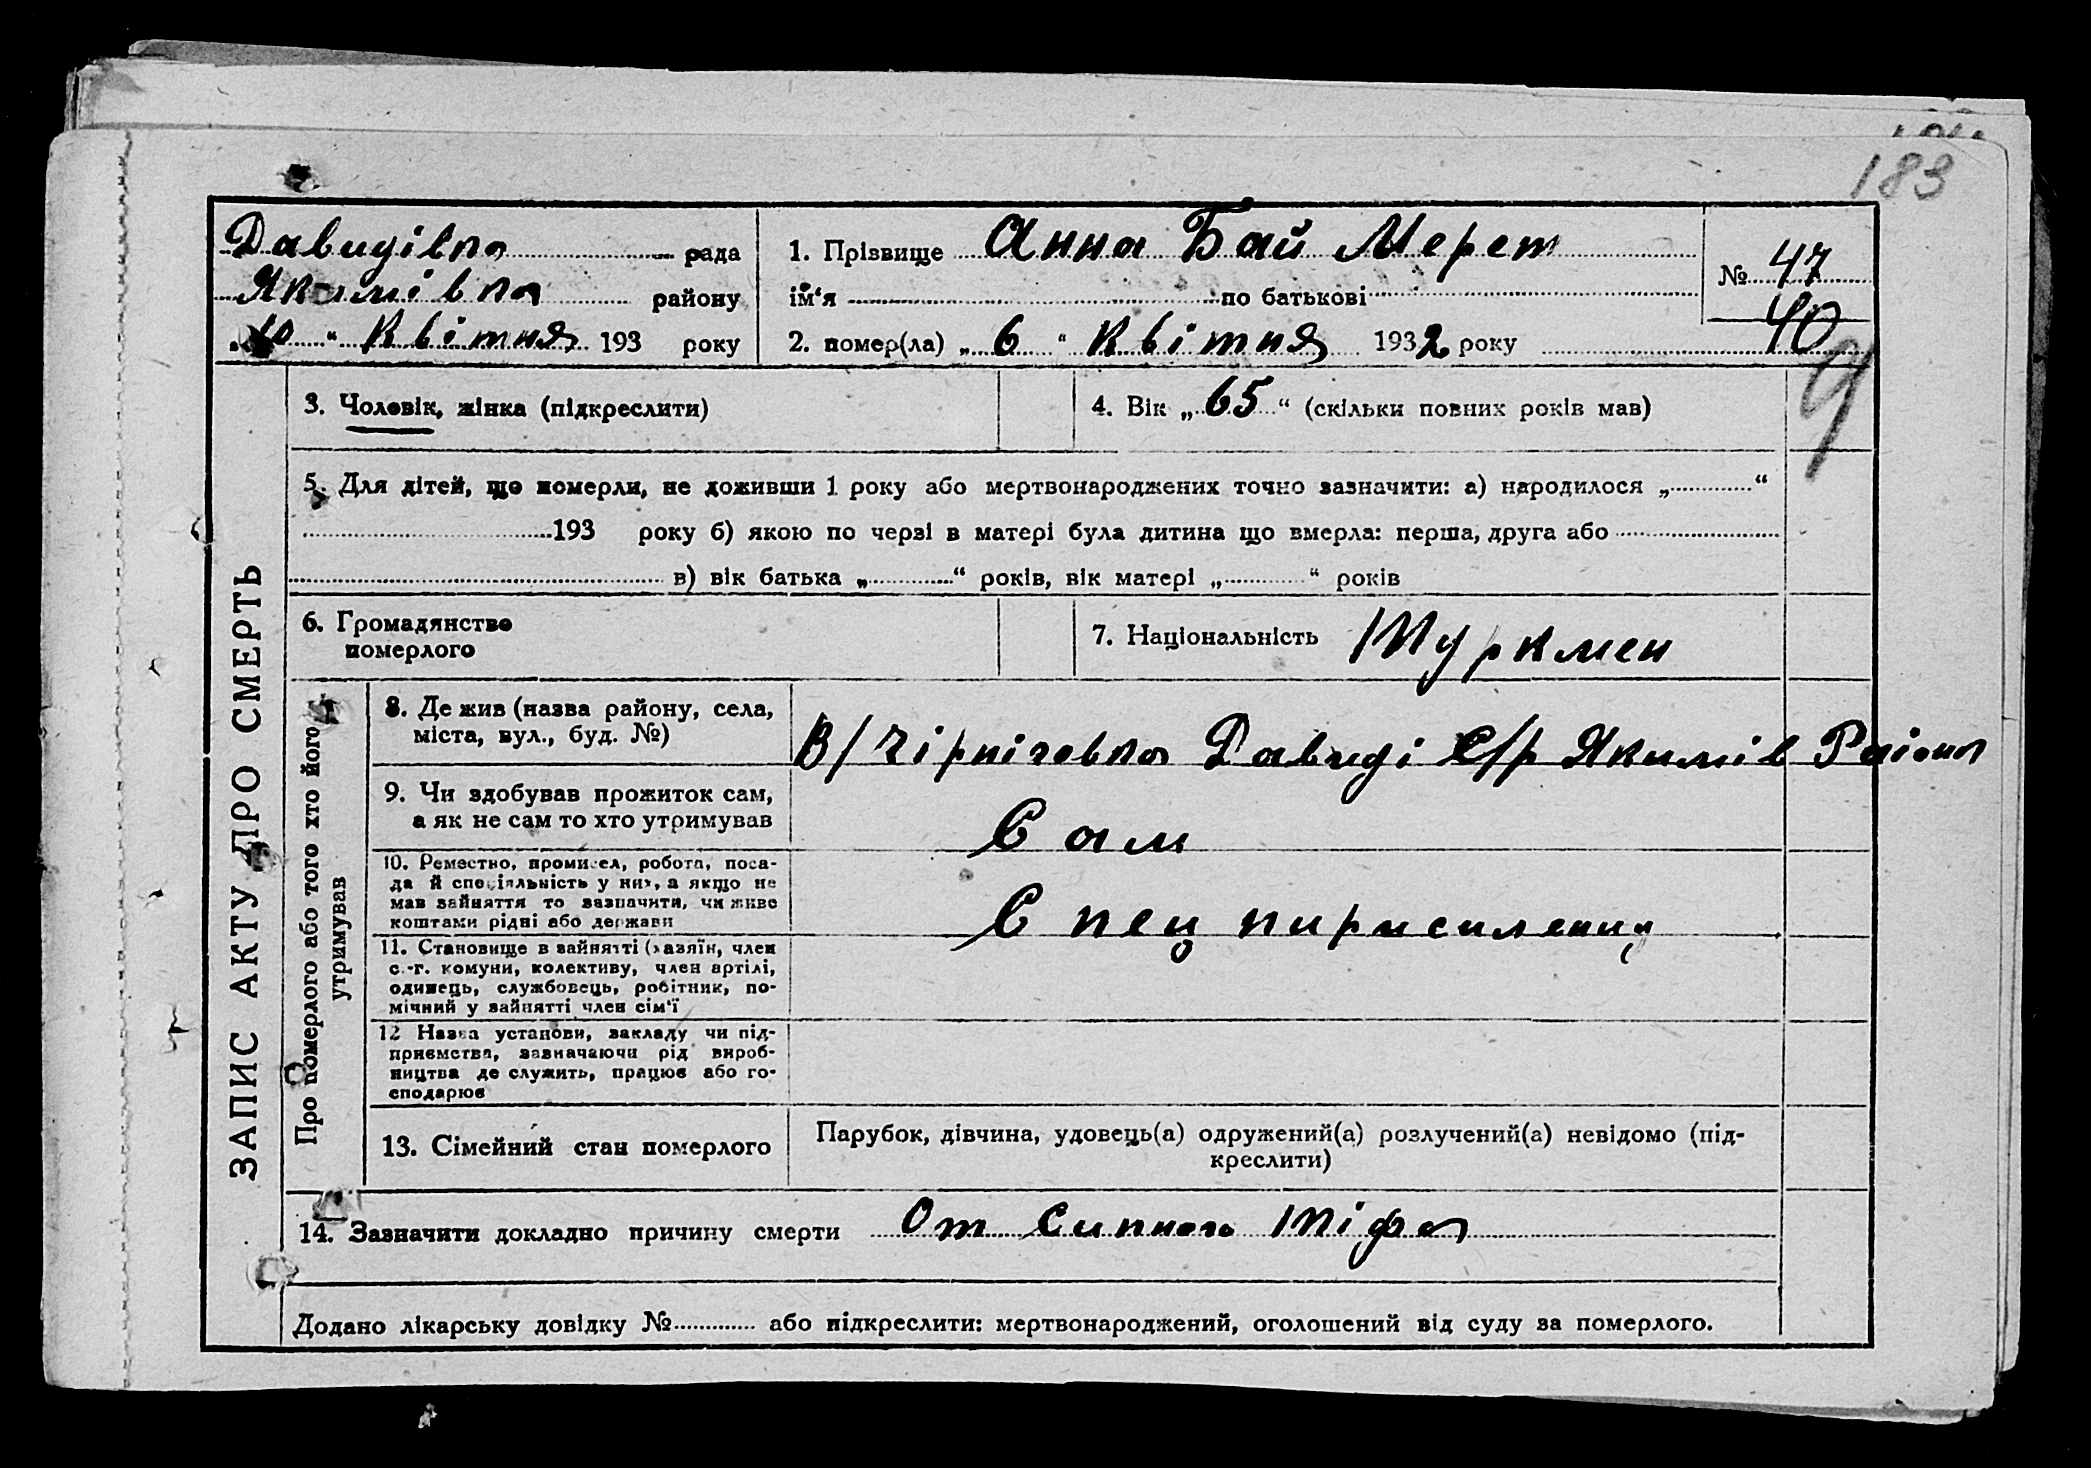 183
Давидівка рада
Якимівка району
„10“ Квітня 193 року
1. Прізвище Анна Бай Мерет
ім‘я по батькові
2. помер(ла) „6“ Квітня 1932 року
№ 47
40
9
3. Чоловік, жінка (підкреслити)
4. Вік „65“ (скільки повних років мав)
5. Для дітей, що померли, не доживши 1 року або мертвонароджених точно зазначити: а) народилося „ “
193 року б) якою по черзі в матері була дитина що вмерла: перша, друга або
в) вік батька „ “ років, вік матері „ “ років
6. Громадянство
померлого
7. Національність Туркмен
ЗАПИС АКТУ ПРО СМЕРТЬ
Про померлого або того хто його
утримував
8. Де жив (назва району, села,
міста, вул., буд. №)
В/ Давиді С/р Якимів Раіона
9. Чи здобував прожиток сам,
а як не сам то хто утримував
Сам
10. Ремество, промисел, робота, поса-
да й спеціяльність у них, а якщо не
мав зайняття то зазначити, чи живе
коштами рідні або держави
Спец пириси
11. Становище в зайнятті (хазяїн, член
с.-г. комуни, колективу, член артілі,
одинець, службовець, робітник, по-
мічний у зайнятті член сім‘ї
12 Назва установи, закладу чи під-
приємства, зазначаючи рід вироб-
ництва де служить, працює або го-
сподарює
13. Сімейний стан померлого
Парубок, дівчина, удовець(а) одружений(а) розлучений(а) невідомо (під-
креслити)
14. Зазначити докладно причину смерти От Сипного Тіфа
Додано лікарську довідку № або підкреслити: мертвонароджений, оголошений від суду за померлого.